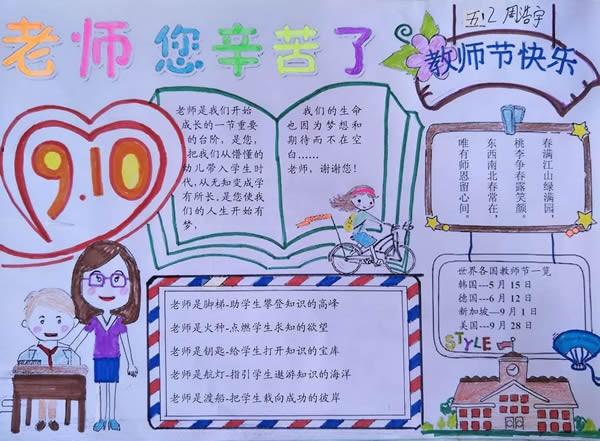 老师您辛苦了
五.2 周浩宇
教师节快乐
9.10
老师是我们开始
成长的一节重要
的台阶，是您，
把我们从懵懂的
幼儿带入学生时
代，从无知变成学
有所长，是您使我
们的人生开始有
梦，
我们的生命
也因为梦想和
期待而不在空
白......
老师，谢谢您！
春满江山绿满园，
桃李争春露笑颜。
东西南北春常在，
唯有师恩留心间。
老师是脚梯-助学生攀登知识的高峰
老师是火种-点燃学生求知的欲望
老师是钥匙-给学生打开知识的宝库
老师是航灯-指引学生遨游知识的海洋
老师是渡船-把学生载向成功的彼岸
世界各国教师节一览
韩国---5 月 15 日
德国---6 月 12 日
新加坡---9 月 1 日
美国---9 月 28 日
STYLE